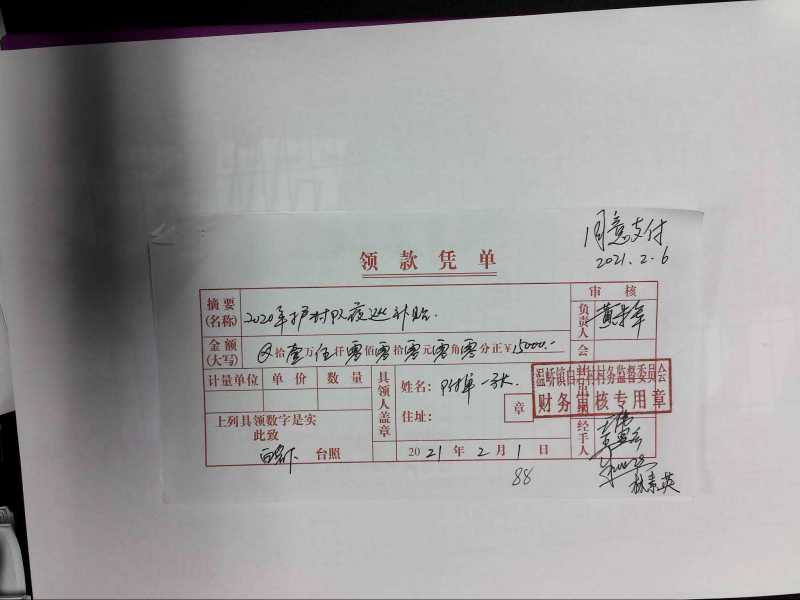 同意支付
2021.2.6
领款凭单
摘要(名称) 2020年护村队夜巡补贴.
审核
负责人
金额(大写) ⊗拾壹万伍仟零佰零拾零元零角零分正¥15000.-
会
计量单位 单价 数量
具领人盖章
姓名：附单一张.
住址：
章
温峤镇白岩下村村务监督委员会
财务审核专用章
上列具领数字是实
此致
白岩下 台照
2021年2月1日
经手人
林素英
88